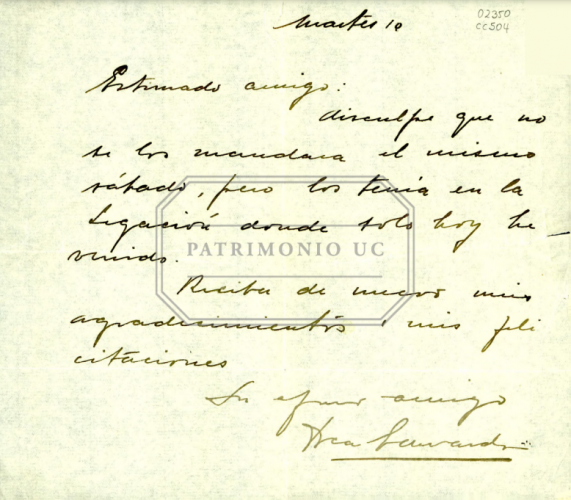 Martes 10
02350
CC504
Estimado amigo:
disculpe que no
se los mandara el mismo
sábado, pero los tenía en la
Legación donde solo hoy he
venido.
PATRIMONIO UC
Reciba de nuevo mis
agradecimientos i mis feli
citaciones
Su afmo amigo
Edwards